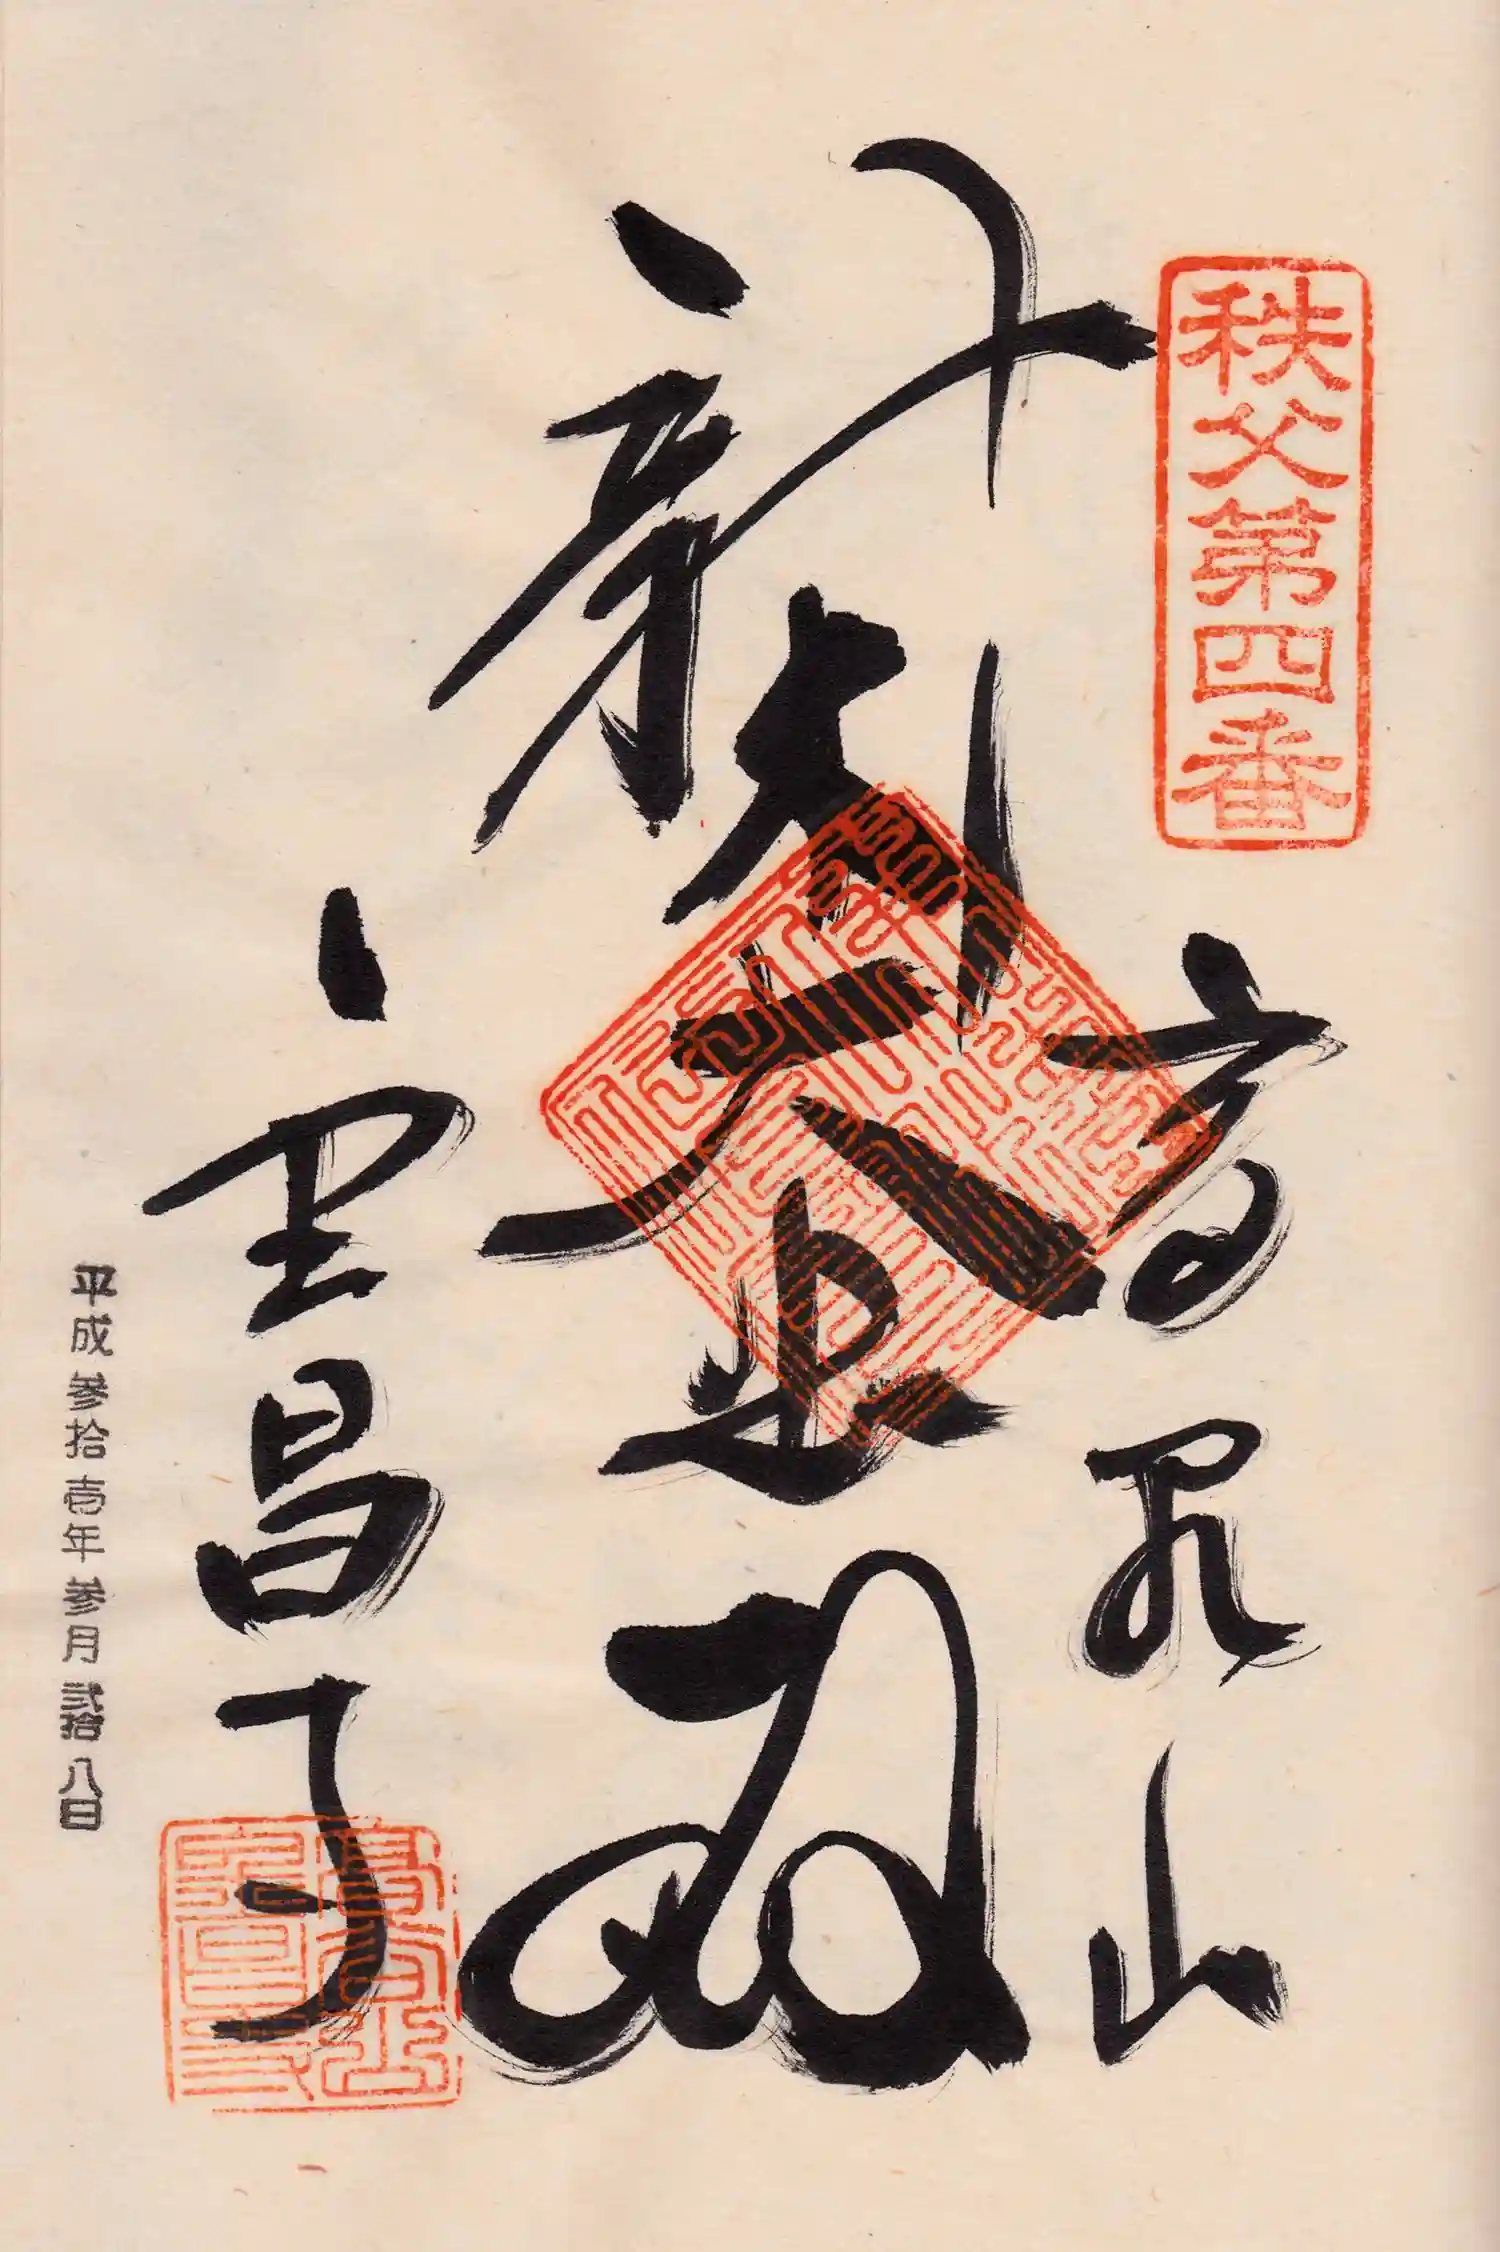 秩父第四番
高谷山
新木大悲
金昌寺
平成参拾壱年参月弐拾八日